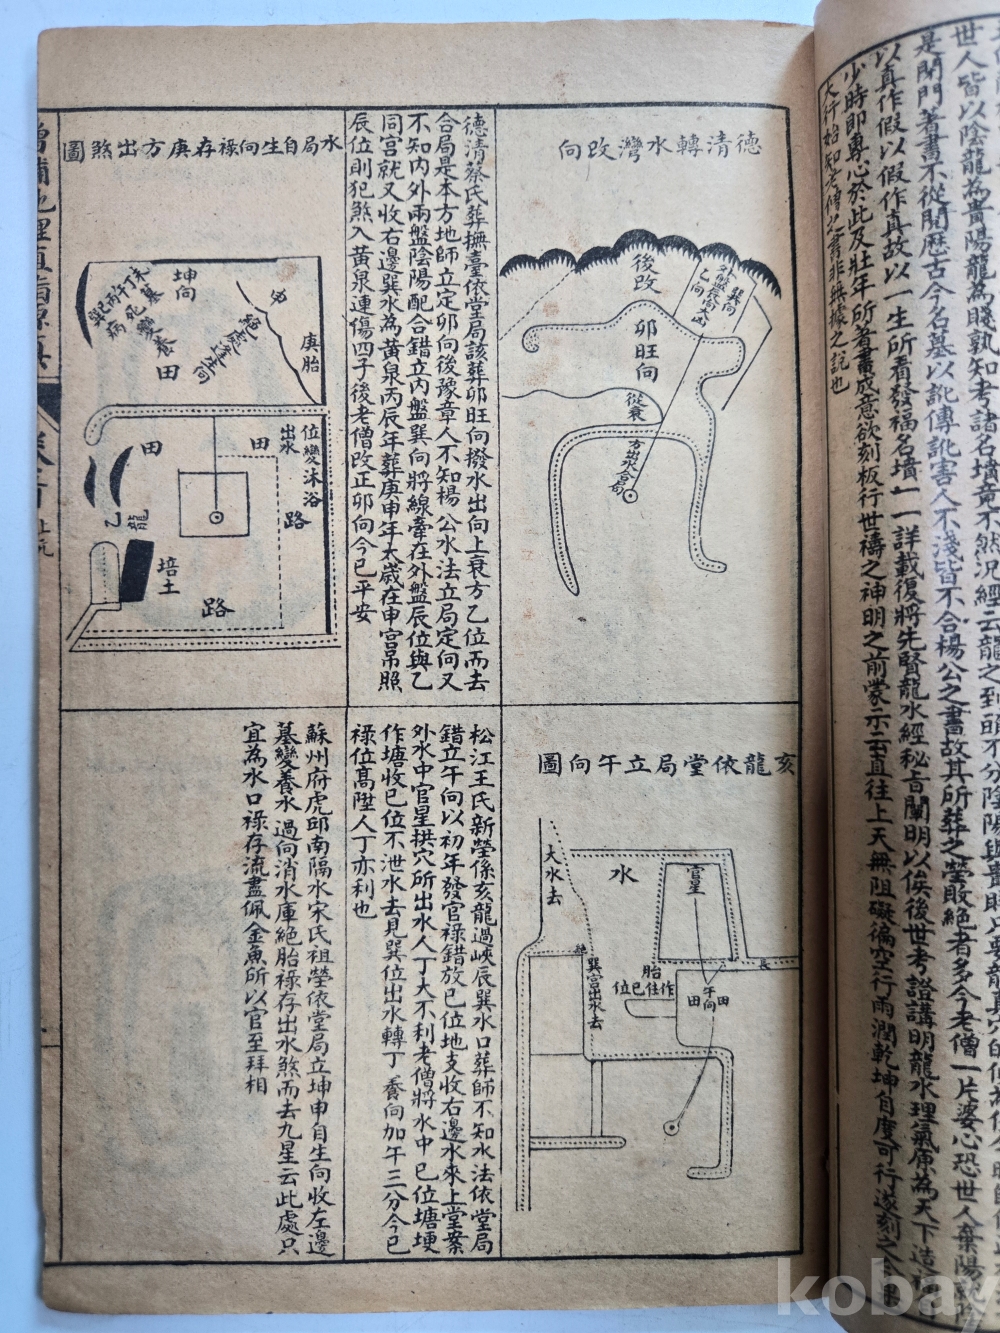 世人皆以陰龍為貴陽龍為賤孰知考諸名墳竟不然況經云龍之到頭不分陰陽與貴賤
是閉門著書不從閱歷古今名墓以訛傳訛害人不淺皆不合楊公之書故其所葬之塋敗絕者多今老僧一片婆心恐世人棄陽就陰
以真作假以假作真故以一生所看發福名墳一一詳載復將先賢龍水經秘旨闡明以俟後世考證講明龍水理氣原為天下造
少時即專心於此及壯年所著書成意欲刻板行世禱之神明之前蒙示云直往上天無阻礙徧空行雨潤乾坤自度可行遂刻之
大行始知老僧之書非無據之說也
德清轉水灣改向
外盤辰向大凶
乙向
巽向
後改
卯旺向
從衰
方出水合局
德清蔡氏葬撫臺依堂局該葬卯旺向撥水出向上衰方乙位而去
合局是本方地師立定卯向後豫章人不知楊公水法立局定向又
不知內外兩盤陰陽配合錯立內盤巽向將線牽在外盤辰位與乙
同宮就又收右邊巽水為黃泉丙辰年葬庚申年太歲在申宮吊照
辰位則犯煞入黃泉連傷四子後老僧改正卯向今已平安
水局自生向祿存庚方出煞圖
坤向
申
庚胎
絕處逢生向
未丁午丙巽
墓死病
變養
田
田
田
位變沐浴
出水
路
乙龍
培土
路
亥龍依堂局立午向圖
大水去
水
官星
絕
巽宮出水去
胎
作住巳位
田午向田
長
松江王氏新塋係亥龍過峽辰巽水口葬師不知水法依堂局
錯立午向以初年發官祿錯放巳位地支收右邊水來上堂案
外水中官星拱穴所出水人丁大不利老僧將水中巳位塘埂
作塘收巳位不泄水去見巽位出水轉丁養向加午三分今已
祿位高陞人丁亦利也
蘇州府虎邱南隔水宋氏祖塋依堂局立坤申自生向收左邊
墓變養水過向消水庫絕胎祿存出水煞而去九星云此處只
宜為水口祿存流盡佩金魚所以官至拜相
kobay